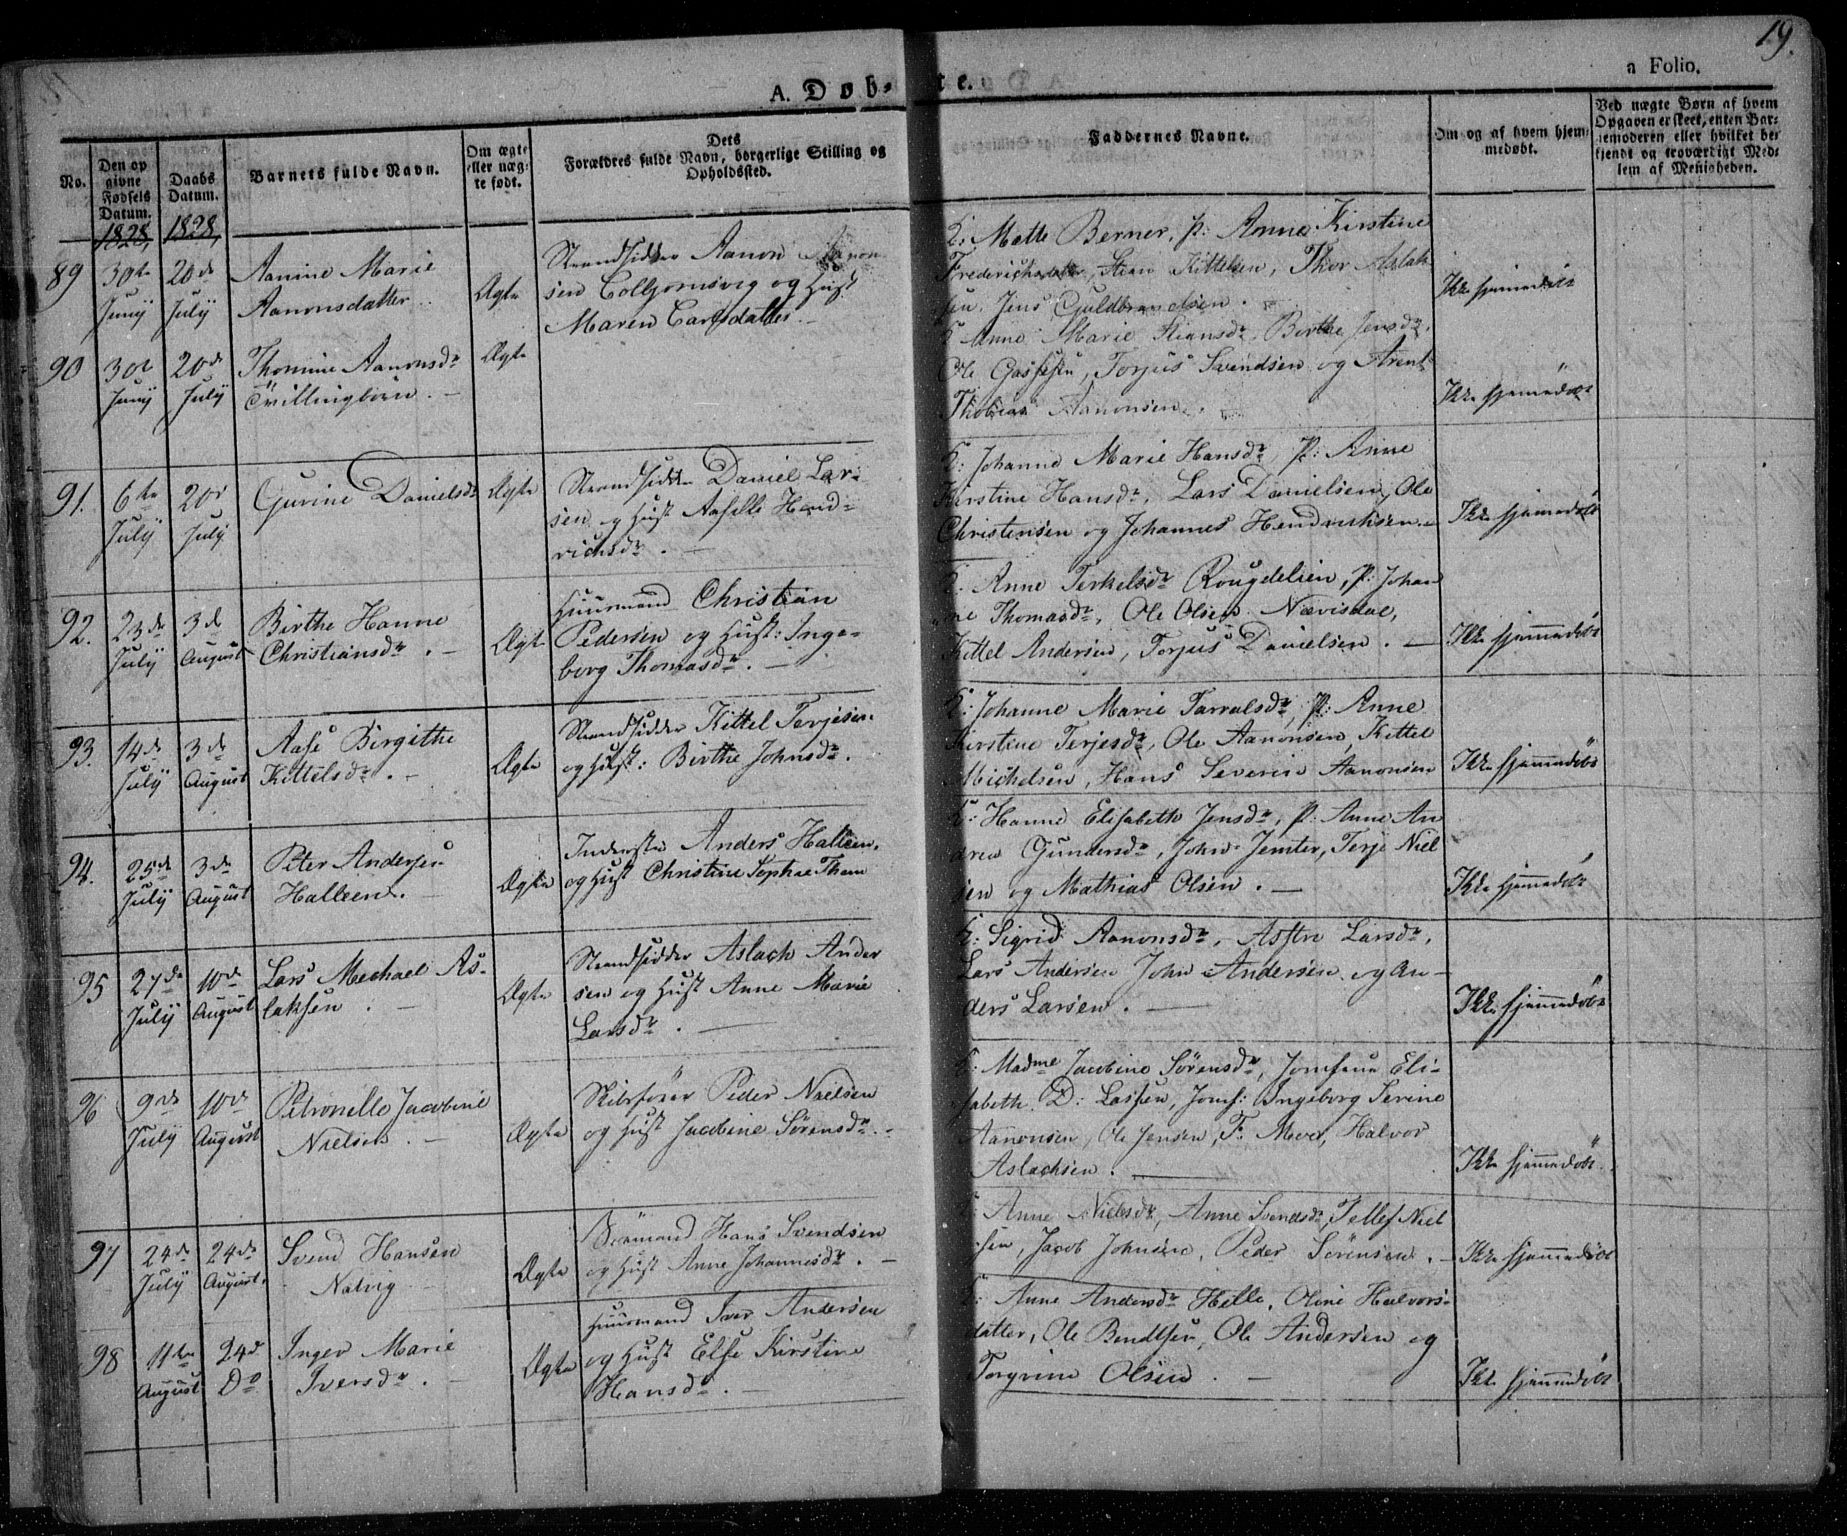 19.
A. Døb-te.
a Folio.
No.
Den op
givne
Fødsels
Datum.
1828,
Daabs
Datum.
1828,
Barnets fulde Navn.
Om ægte
eller næg-
te født.
Dets
Forældres fulde Navn, borgerlige Stilling og
Opholdssted.
Faddernes Navne.
Om og af hvem hjem-
medøbt.
Ved nægte Børn af hvem
Opgaven er skeet, enten Bar-
nemoderen eller hvilket be-
kjendt og troværdigt Med-
lem af Menigheden.
89
30te
Juny
20de
July
Aanine Marie
Aanonsdatter
Ægte
Strandsidder Aanon Aanon
sen Colbjornsvig og Hust
Maren Larsdatter
K: Mette Berner, P: Anne Kirstine
Frederichsdatter, Stian Kittelsen, Thor Aslak
sen, Jens Guldbrandsen.
Ikke hjemmedøbt
90
30te
Juny
20de
July
Thomine Aanonsdr
Tvillingbørn. -
Ægte
K Anne Marie Stiansdr, Birthe Jensdr,
Ole Gassesen, Torjus Svendsen og Arent
Thobias Aanonsen.
Ikke hjemmedøbt
91.
6te
July
20de
July
Gurine Danielsdr
Ægte
Strandsidder Daniel Lar-
sen og Hust Aaselle Hend-
richsdr. -
K: Johanne Marie Hansdr, P: Anne
Kirstine Hansdr, Lars Danielsen, Ole
Christensen og Johannes Hendrichsen.
Ikke hjemmedøbt
92.
23de
July
3de
August
Birthe Hanne
Christiansdr. -
Ægte
Huusmand Christian
Pedersen og Hust: Inge-
borg Thomasdr. -
K. Anne Terkelsdr Rougdelien, P: Johan
ne Thomasdr, Ole Olsen Nævisdal,
Kittel Andersen, Torjus Danielsen. -
Ikke hjemmedøbt
93.
14de
July
3de
August
Aase Birgithe
Kittelsdr. -
Ægte
Strandsidder Kittel Terjesen
og Hust: Birthe Johnsdr.
K: Johanne Marie Tarvalsdr, P: Anne
Kirstine Terjesdr, Ole Aanonsen, Kittel
Michelsen, Hans Severin Aanonsen
Ikke hjemmedøbt
94.
25de
July
3de
August
Peter Andersen
Halleen. -
Ægte
Inderste Anders Halleen,
og Hust Christine Sophie Thom
K: Hanne Elisabeth Jensdr, P: Anne An
drea Gundersdr, John Jemter, Terje Niel
sen og Mathias Olsen. -
Ikke hjemmedøbt
95
27de
July
10de
August
Lars Mechael As-
laksen. -
Ægte
Strandsidder Aslach Ander
sen og Hust Anne Marie
Larsdr. -
K: Sigrid Aanonsdr, Astre Larsdr,
Lars Andersen John Andersen og An-
ders Larsen. -
Ikke hjemmedøbt
96
9de
July
10de
August
Petronelle Jacobine
Nielsen. -
Ægte
Skibsfører Peder Nielsen
og Hust Jacobine Sørensdr. -
K: Madme Jacobine Sørensdr, Jomfrue Eli-
sabeth D: Lassen, Jomf: Ingeborg Serine
Aanonsen, Ole Jensen, F: Meyer, Halvor
Aslachsen. -
Ikke hjemmedøbt.
97
24de
July
24de
August.
Svend Hansen
Natvig
Ægte
Søemand Hans Svendsen
og Hust Anne Johannesdr. -
K Anne Nielsdr, Anne Svendsdr, Tellef Niel
sen, Jacob Johnsen, Peder Sørensen. -
Ikke hjemmedøbt
98
11te
August
24de
Do
Inger Marie
Iversdr. -
Ægte
Huusmand Iver Andersen
og Hust Else Kirstine
Hansdr. -
K: Anne Andersdr Helle, Oline Halvors-
datter, Ole Bendtsen, Ole Andersen og
Torgrim Olsen. -
Ikke hjemmedøbt